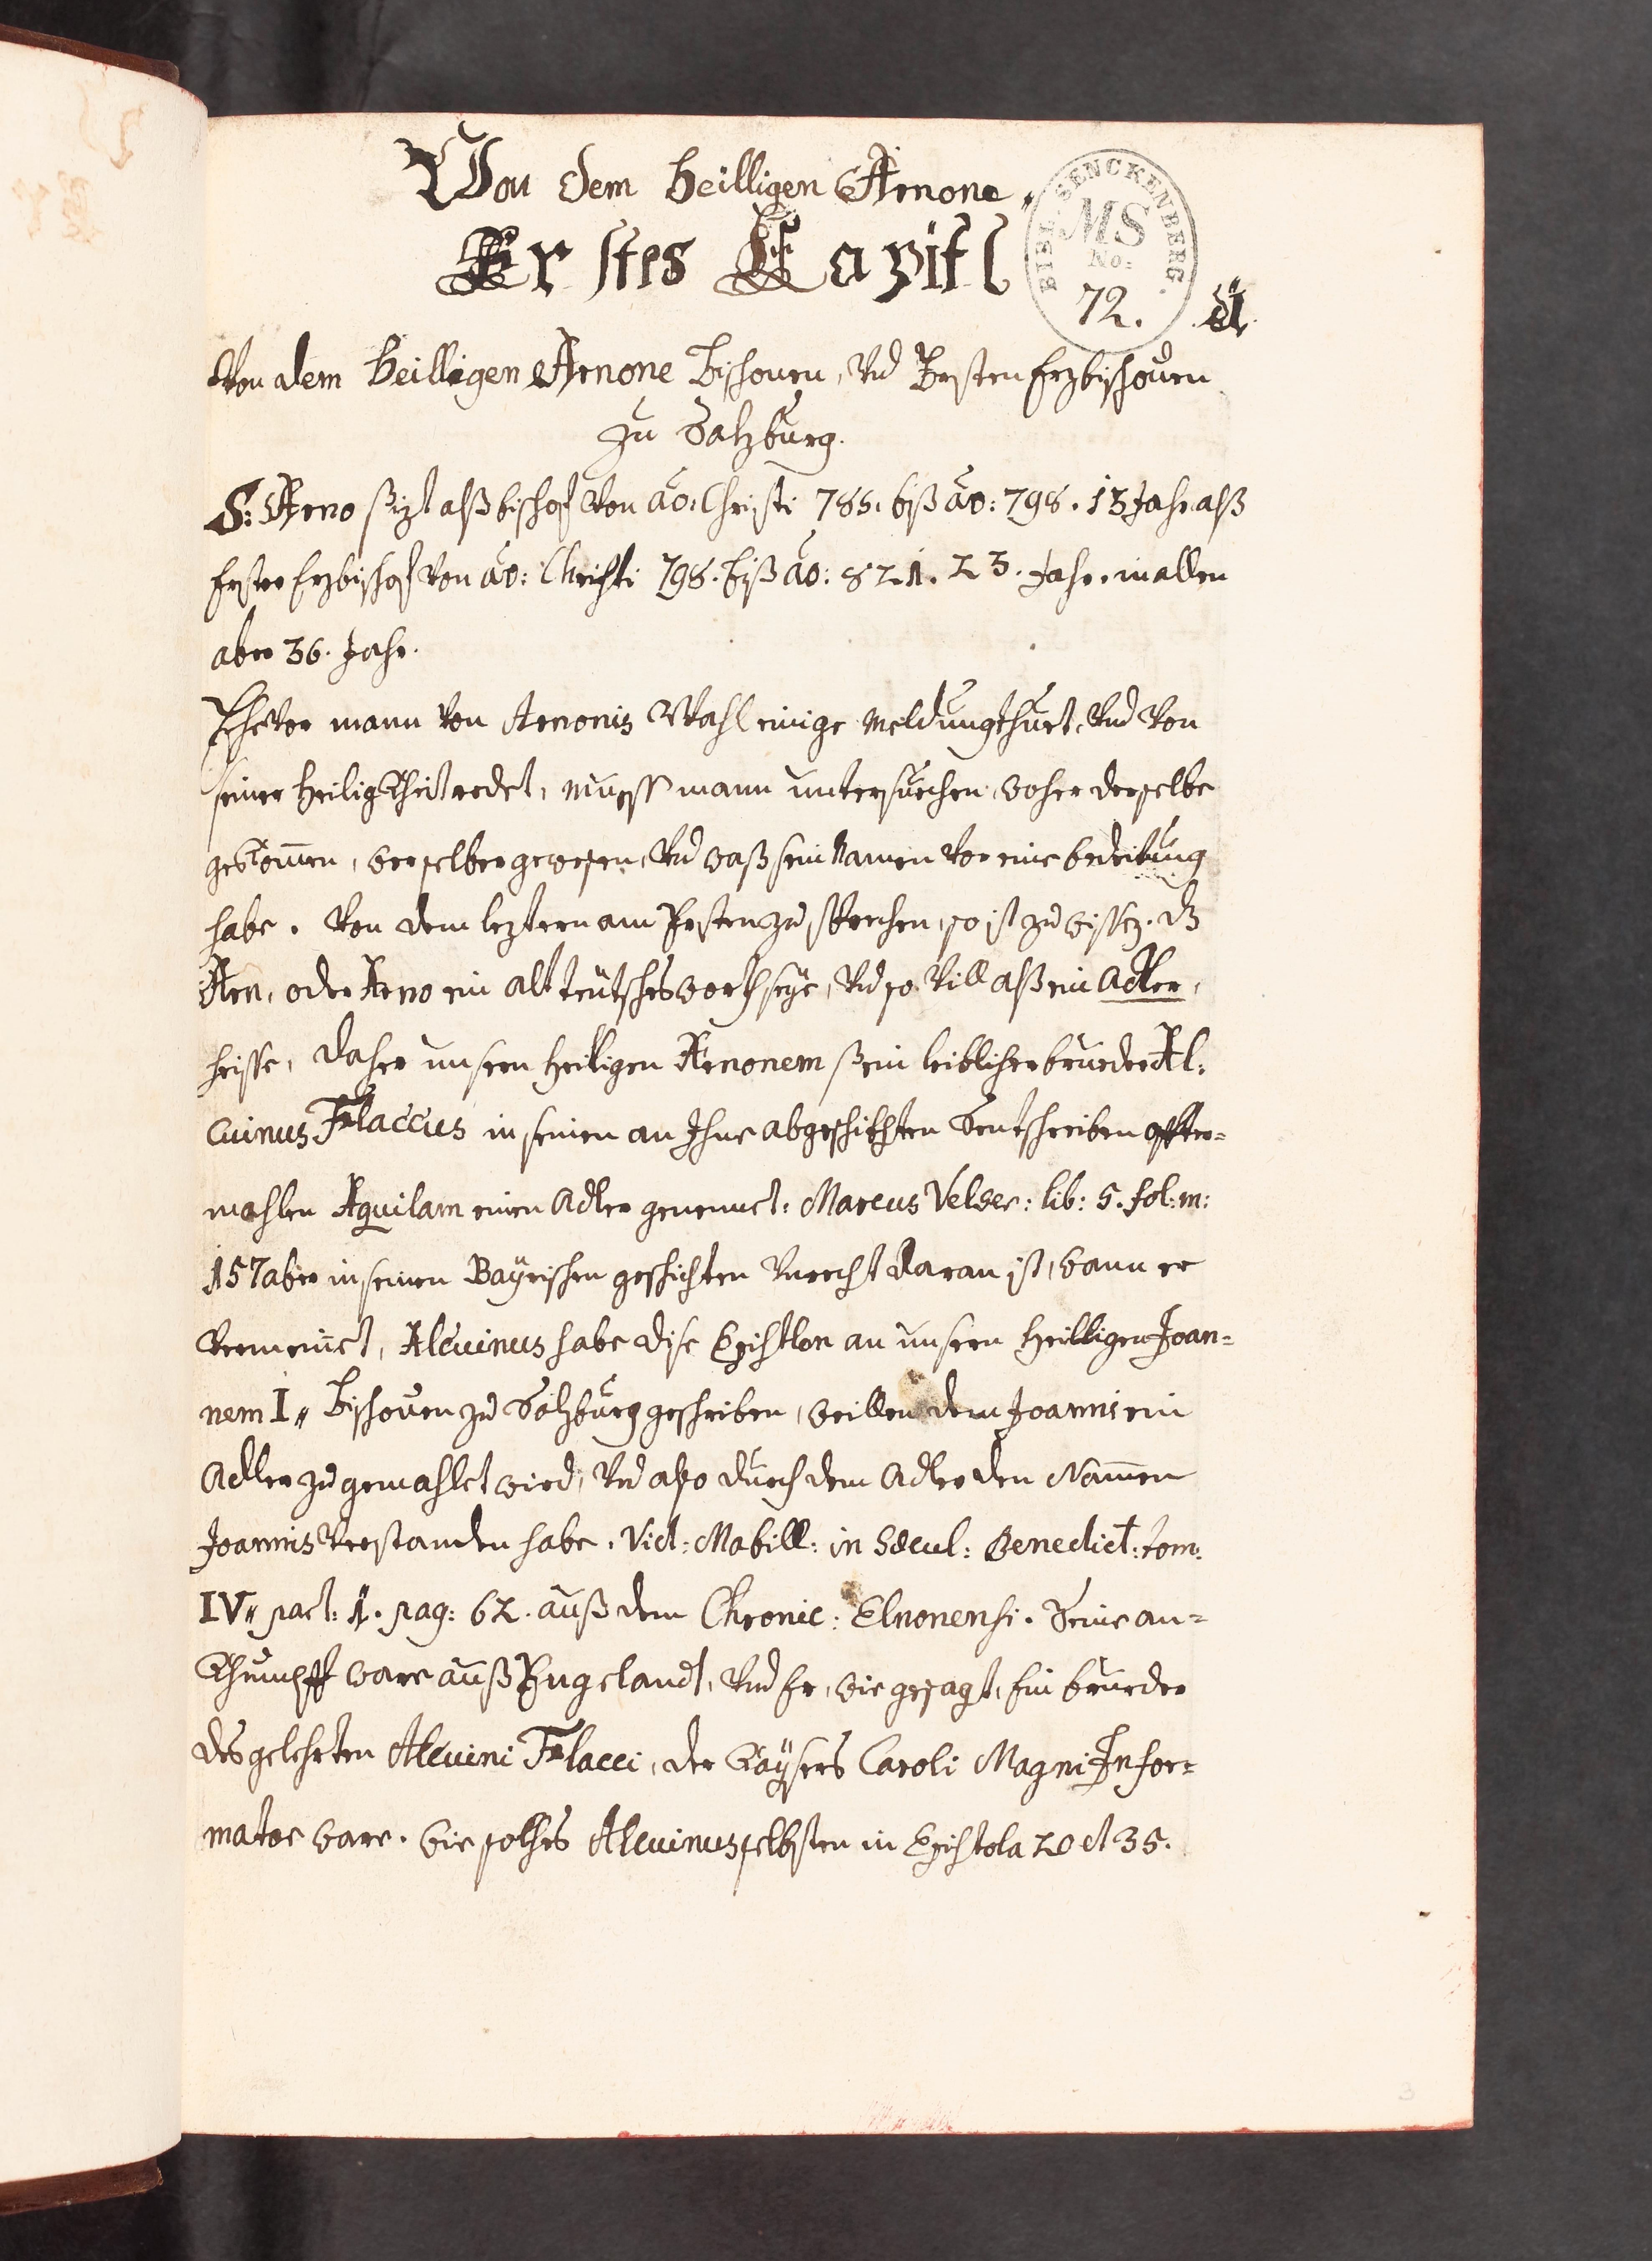 Von dem heilligen Arnone„
Erstes Capitl
BIBL. SENCKENBERG.
MS
No:
72.
Von dem heilligen Arnone Bischoven, Vnd Ersten Erzbischoven
zu Salzburg.
S: Arno sizt alß bischof Von ao: Christi 785. biß ao: 798. 13 Jahr alß
Erster Erzbischof Von ao: Christi 798. biß ao: 821. 23. Jahr. in allen
aber 36. Jahr.
Ehevor mann Von Arnonis Wahl einige meldung thuet, Vnd Von
seiner heiligkheit redet, muess mann untersuechen, woher derselbe
gekommen, wer selber gewesen, Vnd waß sein Namen Vor eine bedeitung
habe. Von dem leztern am Ersten zu sprechen, so ist zu wissen. dz
Arn, oder Arno ein alt teütsches worth seye, Vnd so Vill alß ein Adler,
heisse, daher unsern heiligen Arnonem sein leiblicher bruder Al:
cuinus Flaccus in seinen an Ihne abgeschikhten Sentschreiben offter=
mahlen Aquilam einen Adler genennet: Marcus Velser: lib: 5. fol: m:
157 aber in seinen Bayrischen geschichten Vnrecht daran ist, wann er
Vermeinet, Alcuinus habe dise Epistlen an unsern heilligen Joan=
nem I„ Bischoven zu Salzburg geschriben, weillen dem Joannis ein
Adler zu gemahlet wird, Vnd also durch dem Adler den Nammen
Joannis Verstanden habe. Vid: Mabill: in Sæcul: Benedict: tom:
IV„ part: 1. pag: 62. auß dem Chronic: Elnonensi. Seine an=
khunfft ware auß Engelandt, Vnd Er, wie gesagt, Ein brueder
des gelehrten Alcuini Flacci, der Kaysers Caroli Magni Infor=
mator ware. Wie solches Alcuinus selbsten in Epistola 20 et 35.
3